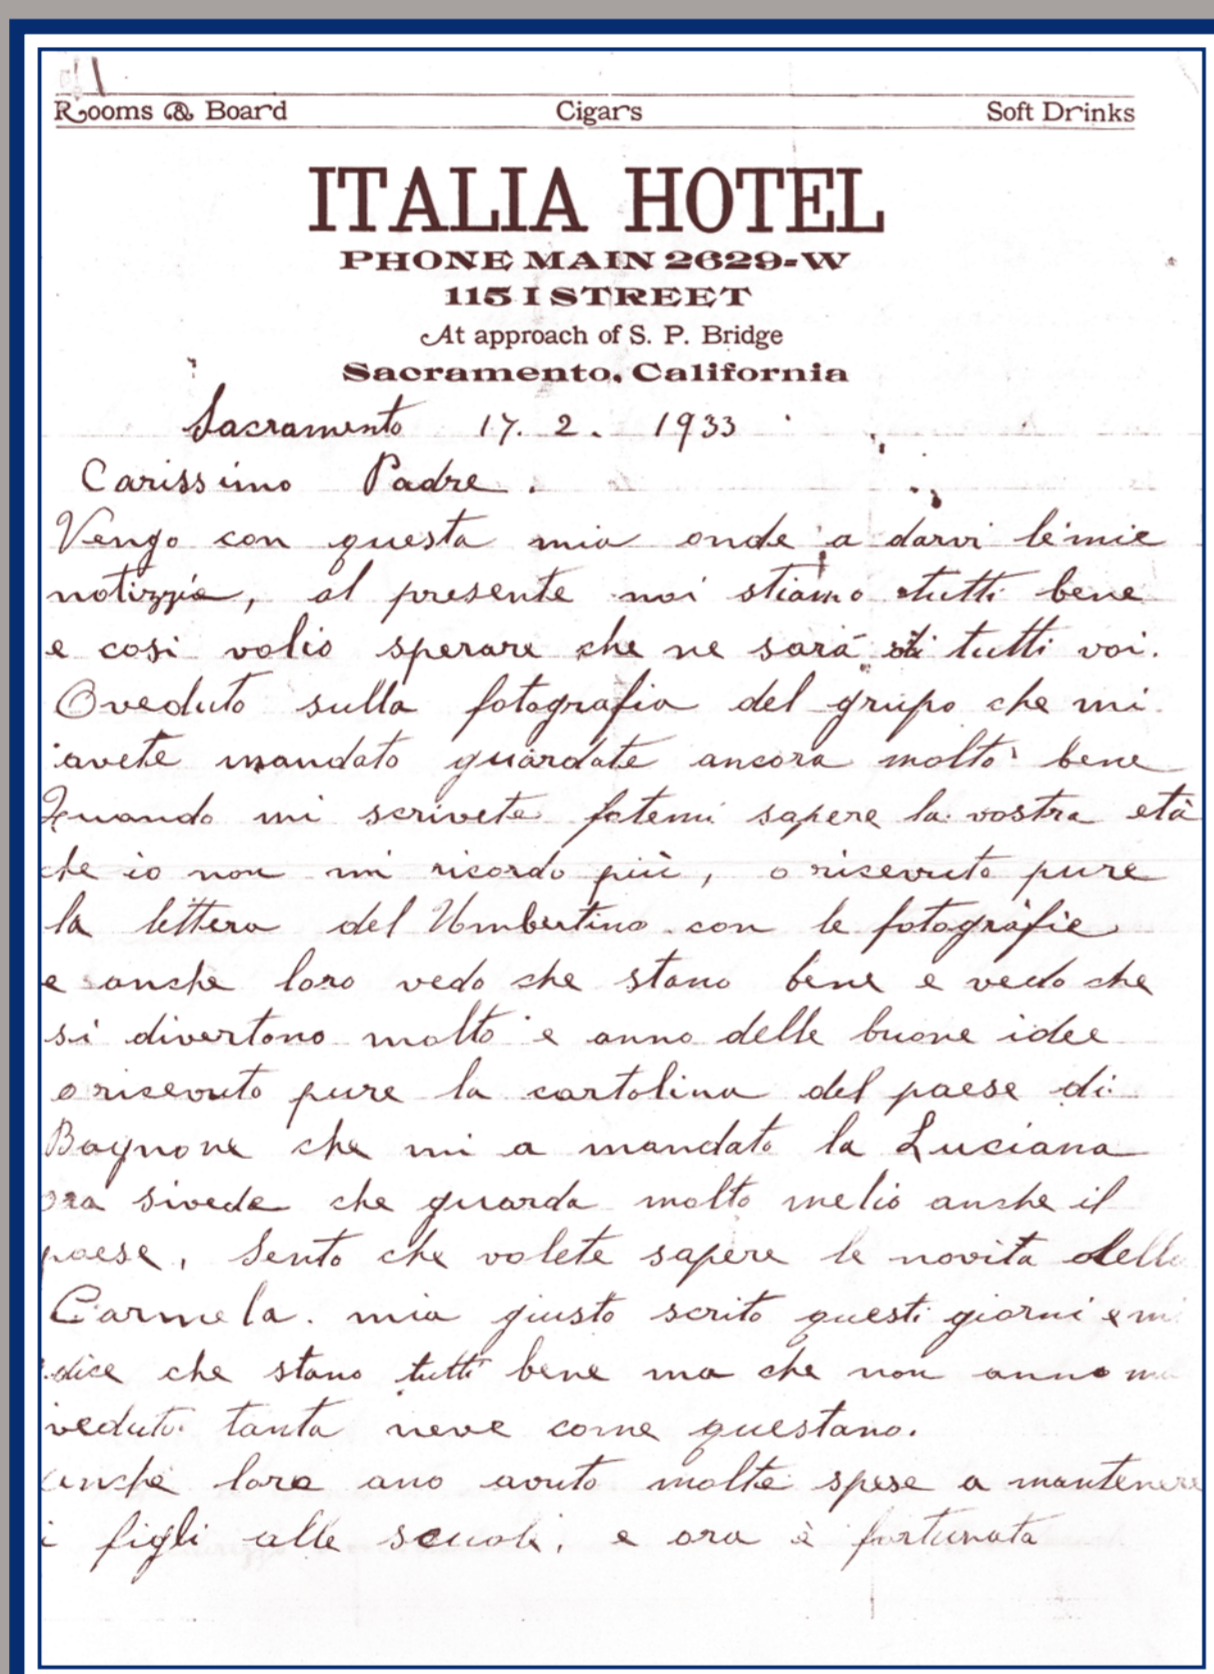 Rooms & Board Cigars Soft Drinks
ITALIA HOTEL
PHONE MAIN 2629-W
115 I STREET
At approach of S. P. Bridge
Sacramento, California
Sacramento 17. 2. 1933
Carissimo Padre.
Vengo con questa mia onde a darvi le mie
notizzie, al presente noi stiamo tutti bene
e cosi volio sperare che ne sará di tutti voi.
Oveduto sulla fotografia del grupo che mi
avete mandato guardate ancora molto bene
Quando mi scrivete fatemi sapere la vostra età
che io non mi ricordo più, o ricevuto pure
la lettera del Umbertino con le fotografie
e anche loro vedo che stano bene e vedo che
si divertono molto e anno delle buone idee
o ricevuto pure la cartolina del paese di
Bagnone che mi a mandato la Luciana
ora sivede che guarda molto melio anche il
paese, Sento che volete sapere le novita della
Carmela. mia giusto scrito questi giorni e mi
dice che stano tutti bene ma che non anno
veduto tanta neve come questano.
anche loro ano avuto molte spese a mantenere
i figli alle scuole, e ora è fortunata